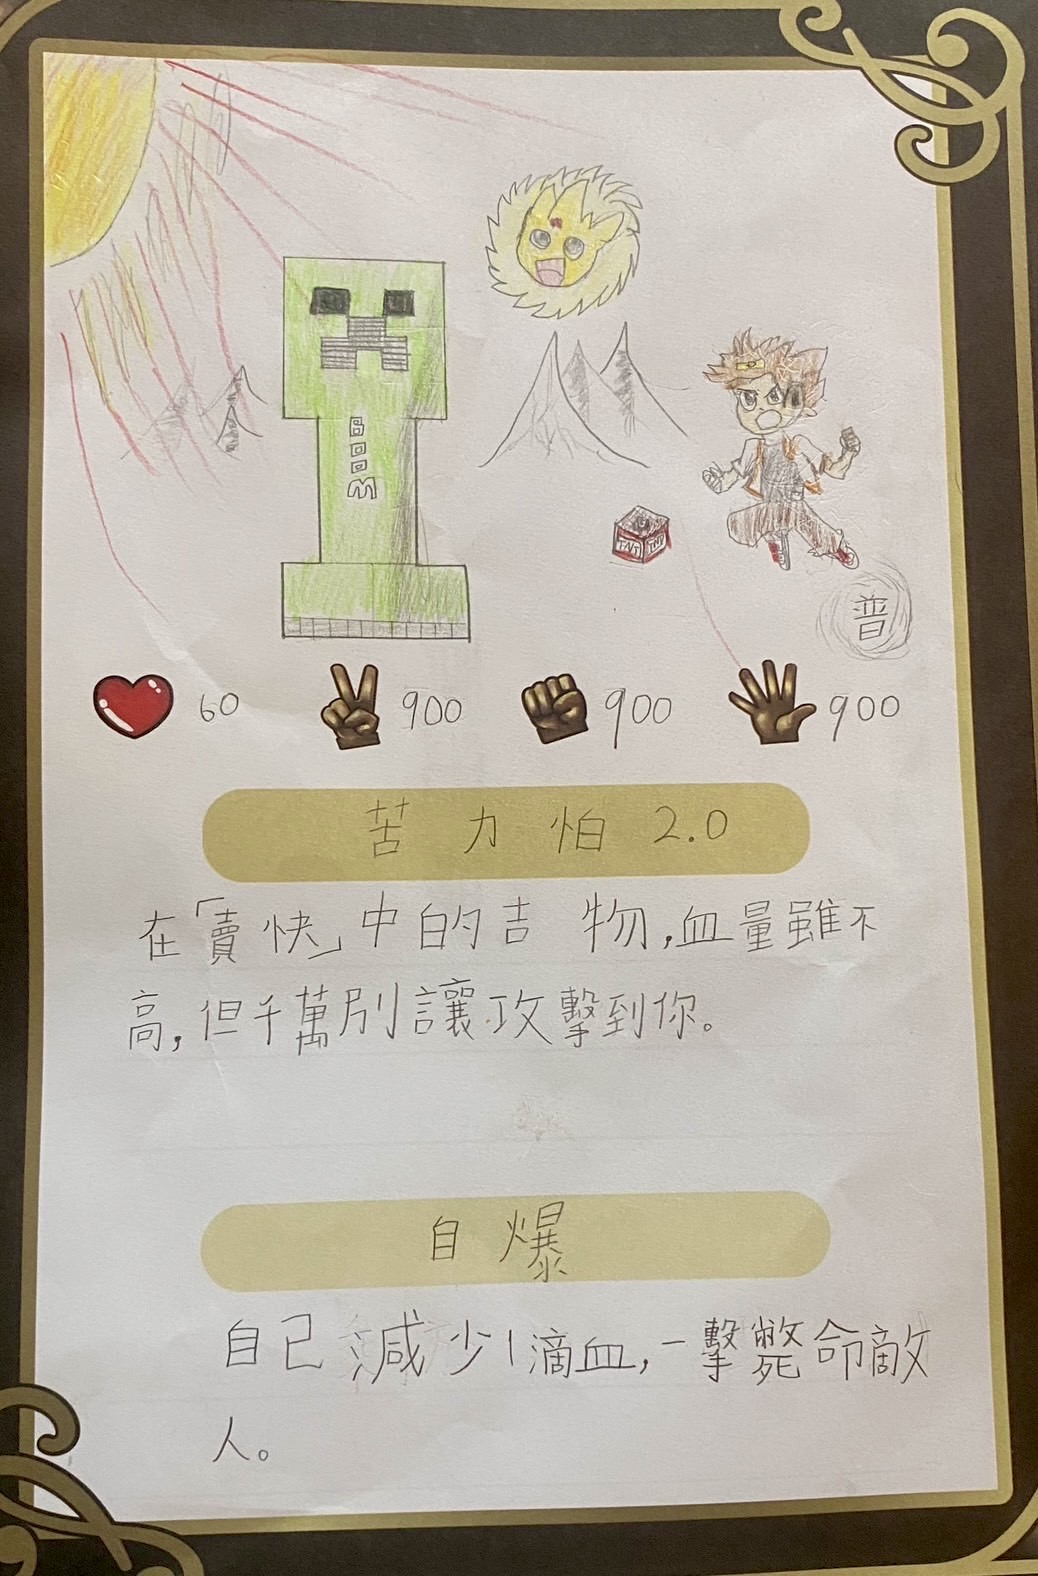 BOOM
TNT TNT
普
60 900 900 900
苦力怕 2.0
在「賣快」中的吉 物,血量雖不
高,但千萬別讓攻擊到你。
自爆
自己減少1滴血,一擊斃命敵
人。